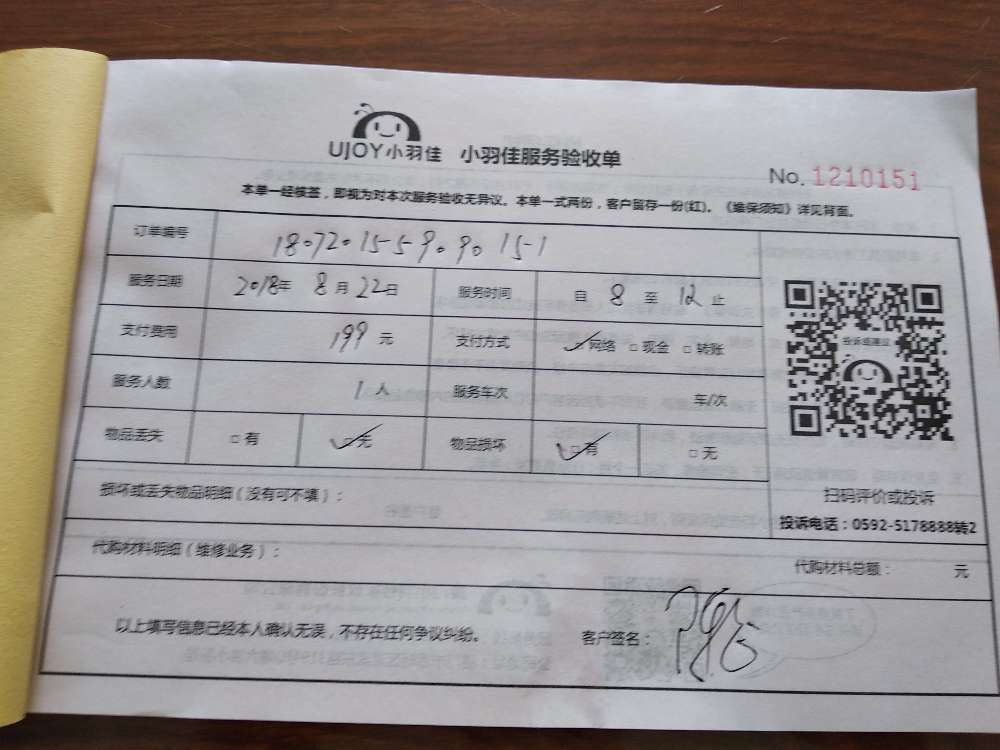 UJOY小羽佳 小羽佳服务验收单
No. 1210151
本单一经核签，即视为对本次服务验收无异议。本单一式两份，客户留存一份(红)。《维保须知》详见背面。
订单编号 1807201559090 15-1
服务日期 2018年 8月 22日 服务时间 自 8 至 12 止
支付费用 199 元 支付方式 □网络 □现金 □转账
投诉或建议
服务人数 1 人 服务车次 车/次
物品丢失 □有 □无 物品损坏 □有 □无
损坏或丢失物品明细（没有可不填）：
扫码评价或投诉
投诉电话：0592-5178888转2
代购材料明细（维修业务）：
代购材料总额： 元
以上填写信息已经本人确认无误，不存在任何争议纠纷。 客户签名：